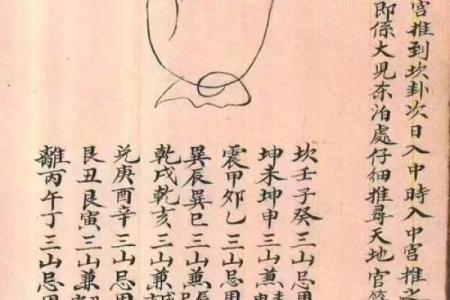 宮推到坎卦次日入中時入中宮推之
即係大見柰泊處仔細推尋天地官
坎壬子癸三山忌用
坤未坤申三山兼
震甲夘乙三山忌用
巽辰巽巳三山兼辰
乾戌乾亥三山兼戌
兌庚酉辛三山忌用
艮丑艮寅三山兼
離丙午丁三山忌用